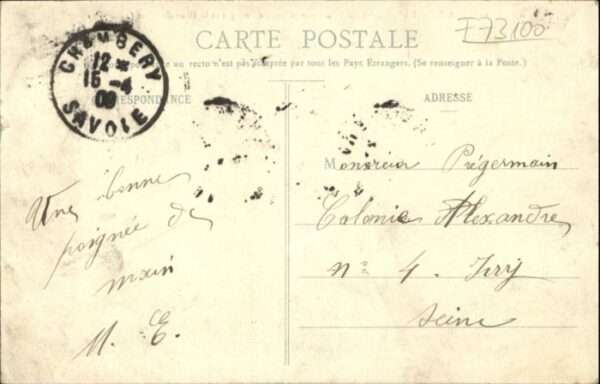 F73100
CARTE POSTALE
au recto n'est pas acceptée par tous les Pays Etrangers. (Se renseigner à la Poste.)
CHAMBERY
12 *
15 -4
09
SAVOIE
RESPONDANCE
ADRESSE
Une bonne
poignée de
main
M. E.
Monsieur Prégermain
Colonie Alexandre
n° 4. Ivry
Seine